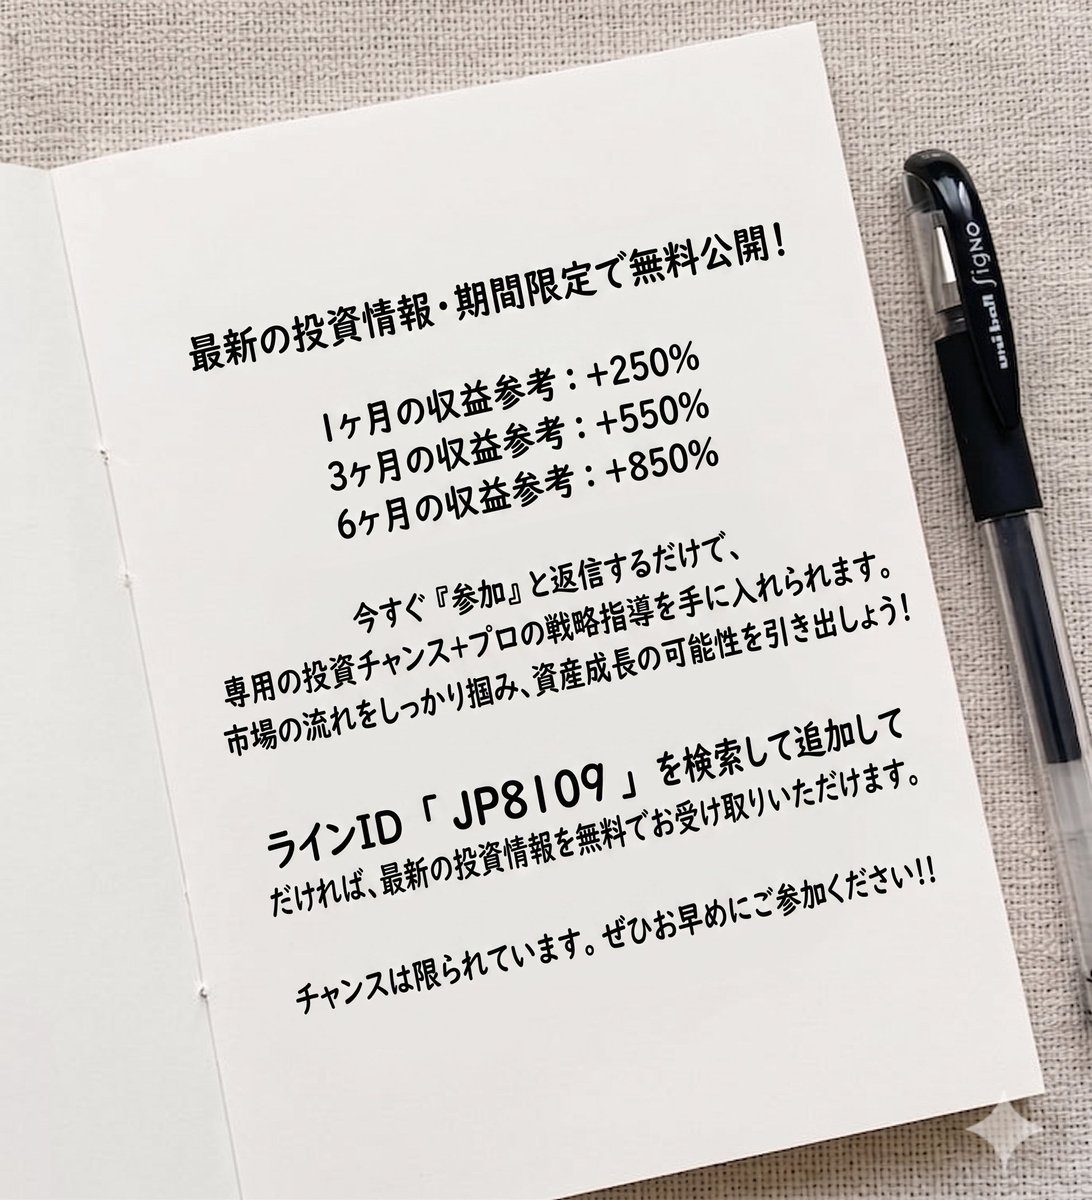 最新の投資情報・期間限定で無料公開!
1ヶ月の収益参考:+250%
3ヶ月の収益参考:+550%
6ヶ月の収益参考:+850%
今すぐ『参加』と返信するだけで、
専用の投資チャンス+プロの戦略指導を手に入れられます。
市場の流れをしっかり掴み、資産成長の可能性を引き出しよう!
ラインID「 JP8109 」を検索して追加して
だければ、最新の投資情報を無料でお受け取りいただけます。
チャンスは限られています。ぜひお早めにご参加ください!!
SigNO
uni-ball